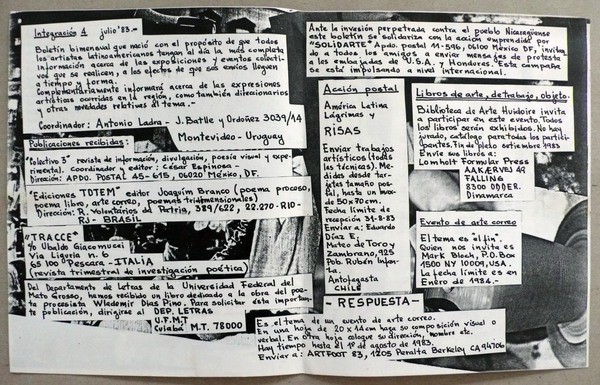 Integración 1 julio '83.-
Boletín bimensual que nació con el propósito de que todos
los artistas latinoamericanos tengan al día la más completa
información acerca de las exposiciones y eventos colecti-
vos que se realicen y a los efectos de que sus envíos lleguen
a tiempo y forma.
Complementariamente informará acerca de las expresiones
artísticas ocurridas en la región, como también direccionarios
y otras novedades relativas al tema.-
Coordinador: Antonio Ladra - J. Batlle y Ordóñez 3039/14
Montevideo - Uruguay
Publicaciones recibidas:
"Colectivo 3" revista de información, divulgación, poesía visual y expe-
rimental. Coordinador y editor: César Espinosa -
Dirección: APDO. POSTAL 45-615, 06020 México, DF.
"Ediciones TOTEM" editor Joaquim Branco (poema proceso,
poema libro, arte correo, poemas tridimensionales)
Dirección: R. Voluntários da Patria, 389/622, 22.270-RIO-
RJ- BRASIL
"TRACCE"
c/o Ubaldo Giacomucci
Via Liguria n. 6
65100 Pescara - ITALIA
(revista trimestral de investigación poética)
Del Departamento de Letras de la Universidad Federal del
Mato Grosso, hemos recibido un libro dedicado a la obra del poe-
ta procesista Wlademir Dias Pino. Para solicitar esta importan-
te publicación, dirigirse al DEP. LETRAS
U.F.M.T
Cuiabá M.T. 78000
Ante la invasión perpetrada contra el pueblo Nicaragüense
este boletín se solidariza con la acción emprendida por
"SOLIDARTE" Apdo. postal 11-596, 06100 México DF, invitan-
do a todos los amigos a enviar mensajes de protesta
a las embajadas de U.S.A. y Honduras. Esta campaña
se está impulsando a nivel internacional.
Acción postal
América Latina
Lágrimas y
RISAS
Enviar trabajos
artísticos (todas
las técnicas). Me-
didas desde tar-
jetas tamaño pos-
tal, hasta un máx.
de 50x70 cm.
Fecha límite de
recepción 31-8-83
Enviar a: Eduardo
Díaz E.
Mateo de Toro y
Zambrano, 925
Pob. Rubén Infan-
ta.
Antofagasta
CHILE
Libros de arte, de trabajo, objeto.
Biblioteca de Arte Huidoire invita
a participar en este evento. Todos
los libros serán exhibidos. No hay
jurado, catálogo para todos los partici-
pantes. Fin de plazo setiembre 1983
Envíe sus libros a:
Lomholt Formular Press
AAKÆRVEJ 49
FALLING
8300 ODDER.
Dinamarca
Evento de arte correo
El tema es "el fin".
Quien nos invita es
Mark Bloch, P.O. Box
1500 NY 10009, USA.
La fecha límite es en
Enero de 1984.-
- RESPUESTA -
Es el tema de un evento de arte correo.
En una hoja de 20 x 14 cm haga su composición visual o
verbal. En otra hoja coloque su dirección, nombre etc.
Hay tiempo hasta el 1º de agosto de 1983.
Enviar a: ARTFOOT 83, 1205 Peralta Berkeley CA 94706